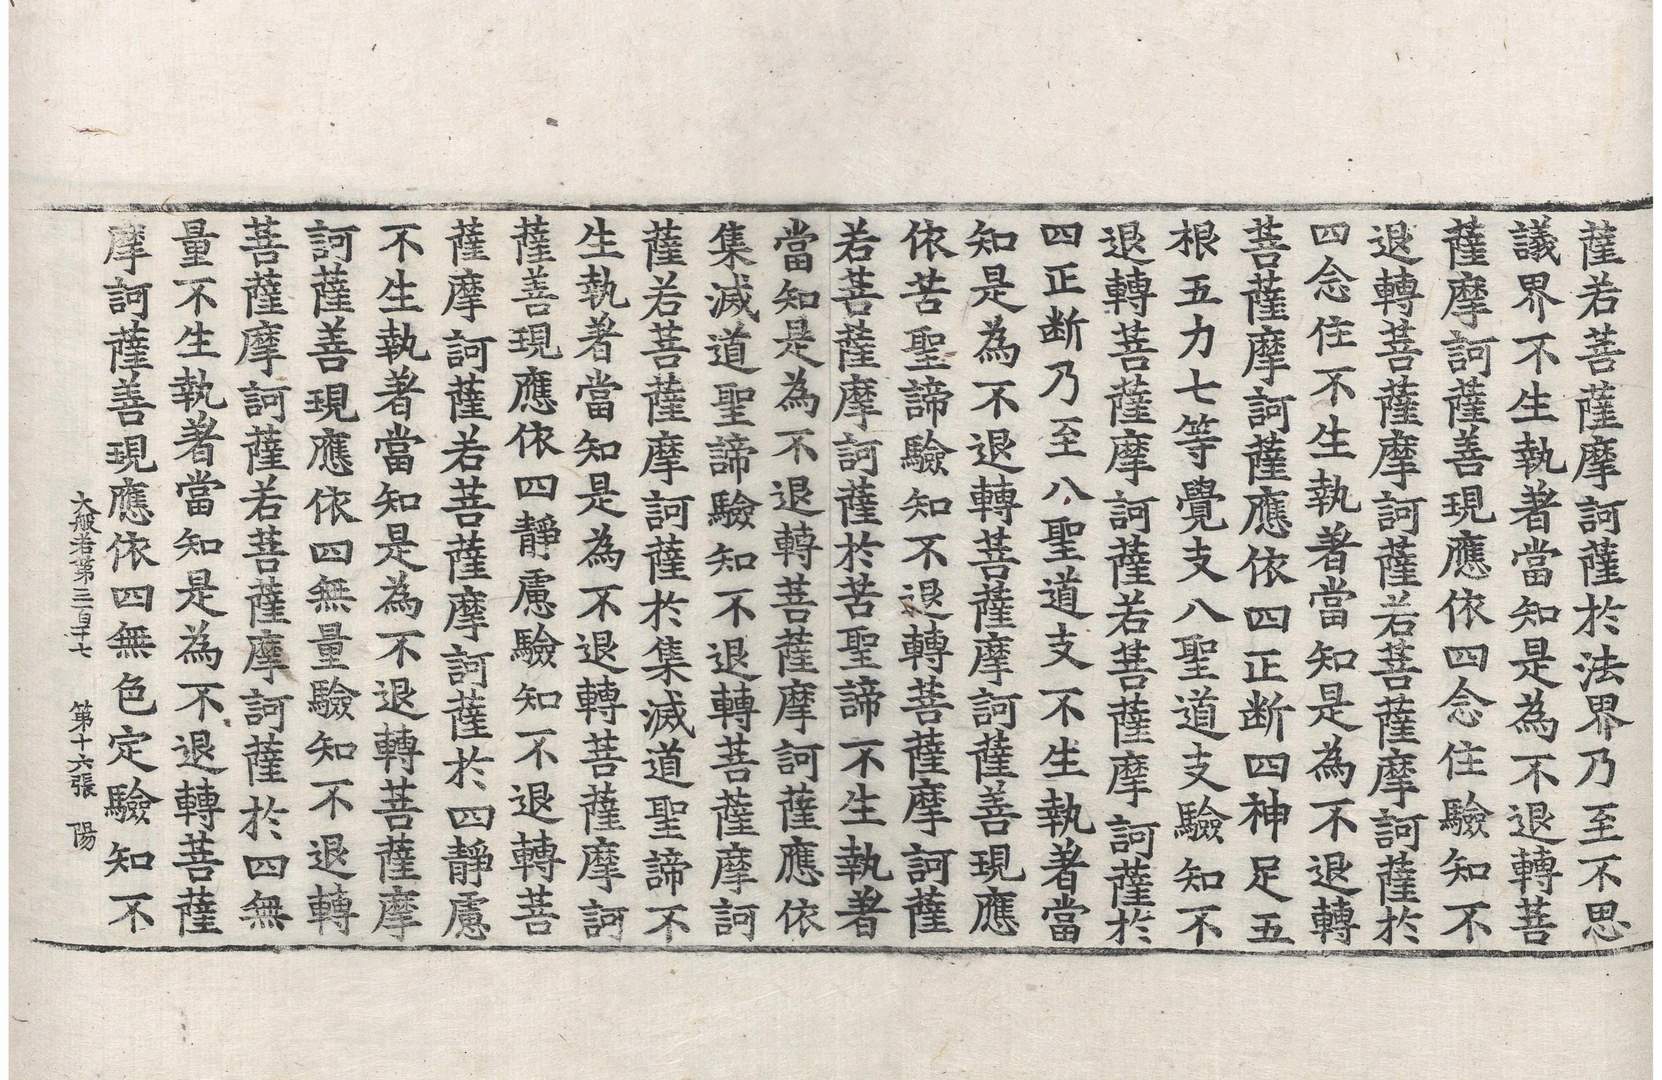 薩若菩薩摩訶薩於法界乃至不思
議界不生執著當知是為不退轉菩
薩摩訶薩善現應依四念住驗知不
退轉菩薩摩訶薩若菩薩摩訶薩於
四念住不生執著當知是為不退轉
菩薩摩訶薩應依四正断四神足五
根五力七等覺支八聖道支驗知不
退轉菩薩摩訶薩若菩薩摩訶薩於
四正断乃至八聖道支不生執著當
知是為不退轉菩薩摩訶薩善現應
依苦聖諦驗知不退轉菩薩摩訶薩
若菩薩摩訶薩於苦聖諦不生執著
當知是為不退轉菩薩摩訶薩應依
集滅道聖諦驗知不退轉菩薩摩訶
薩若菩薩摩訶薩於集滅道聖諦不
生執著當知是為不退轉菩薩摩訶
薩善現應依四靜慮驗知不退轉菩
薩摩訶薩若菩薩摩訶薩於四靜慮
不生執著當知是為不退轉菩薩摩
訶薩善現應依四無量驗知不退轉
菩薩摩訶薩若菩薩摩訶薩於四無
量不生執著當知是為不退轉菩薩
摩訶薩善現應依四無色定驗知不
大般若第三百廿七 第十六張 陽